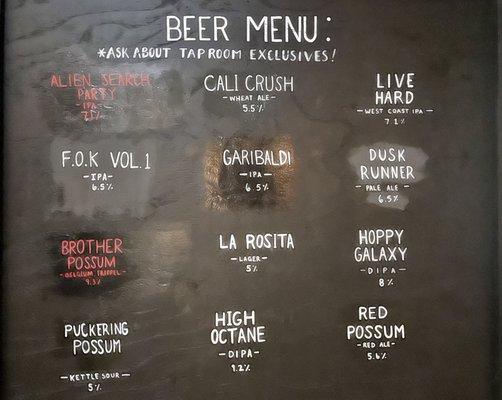 BEER MENU:
*ASK ABOUT TAPROOM EXCLUSIVES!
ALIEN SEARCH
PARTY
-IPA-
7.1%
CALI CRUSH
-WHEAT ALE-
5.5%
LIVE
HARD
-WEST COAST IPA-
7.1%
F.O.K VOL.1
-IPA-
6.5%
GARIBALDI
-IPA-
6.5%
DUSK
RUNNER
-PALE ALE-
6.5%
BROTHER
POSSUM
-BELGIUM TRIPPEL-
9.3%
LA ROSITA
-LAGER-
5%
HOPPY
GALAXY
-DIPA-
8%
PUCKERING
POSSUM
-KETTLE SOUR-
5%
HIGH
OCTANE
-DIPA-
9.2%
RED
POSSUM
-RED ALE-
5.6%